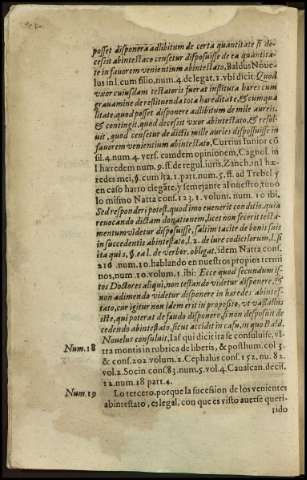 posset disponere ad libitum de certa quantitate si de-
cessit abintestato censetur disposuisse de ea quantita-
te in fauorem venientium abintestato, Baldus Noue-
lus in l. cum filio, num. 4. de legat. 1. vbi dicit. Quod
vxor cuiusdam testatoris fuerat instituta haeres cum
grauamine de restituenda tota haereditate, & cum qua
litate quod posset disponere ad libitum de mille aureis.
& contingit, quod decessit vxor abintestato, & resol-
uit, quod censetur de dictis mille aureis disposuisse in
fauorem venientium abintestato, Curtius Iunior con
sil. 4. num. 4. vers. eamdem opinionem, Cagnol. in
l. haeredem num. 9. ff. de regul. iuris, Zanch. in l. hae
redes mei, §. cum ita. 1. part. num. 5. ff. ad Trebel. y
en caso harto elegante, y semejante al nuestro, tuuo
lo mismo Natta cons. 123. 1. volum. num. 10 ibi.
Sed responderi potest, quod imo euenerit conditio, quia
reuocando dictam donationem, licet non fecerit testa-
mentum videtur disposuisse, saltim tacite de bonis suis
in succedentis abintestato, l. 2. de iure codicilorum, l. si
ita quis, §. ea l. de verbor. obligat, idem Natta cons.
216 .num. 10. hablando en nuestros propios termi
nos, num 10. volum. 1. ibi: Ecce quod secundum is-
tos Doctores aliqui, non testando videtur disponere, &
non adimendo videtur disponere in haredes abintes-
tato, cur igitur non idem erit in proposito, vt vassallus
iste, qui poterat de feudo disponere, si non disposuit de
cedendo abintestato, sicut accidit in casu, in quo Bald.
Nouelus consuluit, las qui dicit ita se consuluisse, vl-
Num. 18 tra montis in rubrica de liberis, & posthum. col. 3.
& cons. 202. volum. 2. Cephalus cons. 152. nu. 82.
vol. 2. Socin cons. 83. num. 5. vol. 4. Caualcan. deci.
12. num. 18 part. 4.
Num. 19 Lo tercero, porque la sucession de los venientes
abintestato, es legal, con que es visto auerse queri-
rido